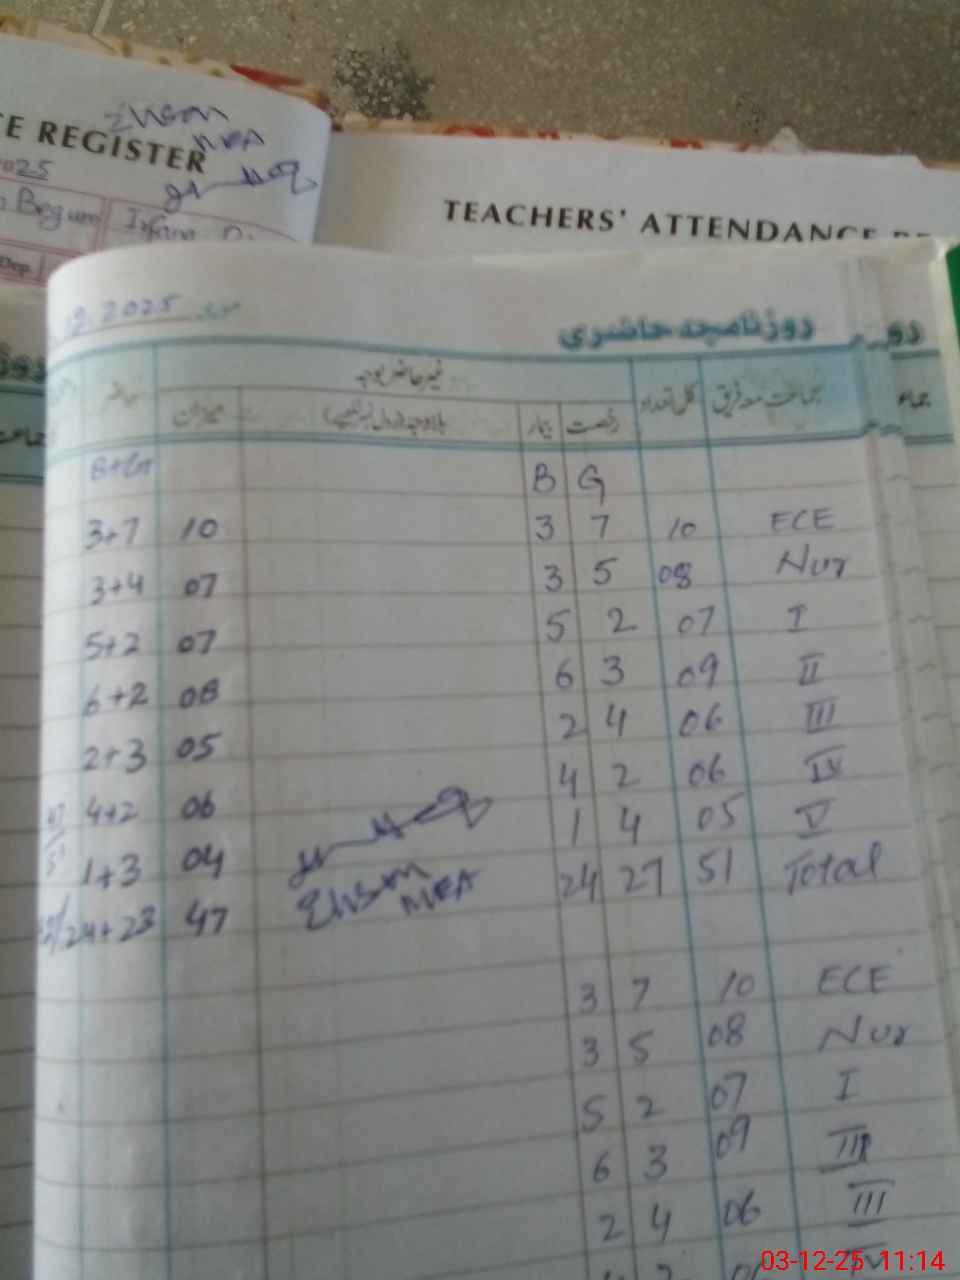 Ehsan
MEA
CE REGISTER
2025
Begum
Dep.
TEACHERS' ATTENDANCE
12 2025
روزنامچہ حاضری
غیر حاضر بوجہ
حاضر میزان بلاوجہ (رول نمبر لکھیے) بیمار رخصت کل تعداد جماعت معہ فریق
B+G B G
3+7 10 3 7 10 ECE
3+4 07 3 5 08 Nur
5+2 07 5 2 07 I
6+2 08 6 3 09 II
2+3 05 2 4 06 III
4+2 06 4 2 06 IV
1+3 04 1 4 05 V
24+23 47 24 27 51 Total
47
51
Ehsan
MEA
3 7 10 ECE
3 5 08 Nur
5 2 07 I
6 3 09 III
2 4 06 III
03-12-25 11:14